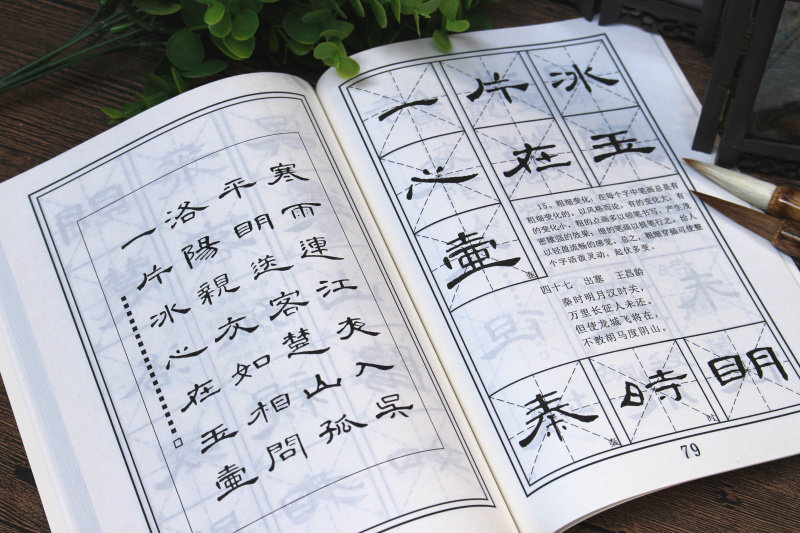 寒雨連江夜入吳
平明送客楚山孤
洛陽親友如相問
一片冰心在玉壺
一片冰
心在玉
壺
壶
15、粗细变化，在每个字中笔画总是有
粗细变化的，以风格而论，有的变化大，有
的变化小，粗的点画多以顿笔书写，产生茂
密雄强的效果，细的笔画以提笔行之，给人
以轻盈流畅的感觉，总之，粗细穿插可使整
个字活泼灵动，起伏多变。
四十七 出塞 王昌龄
秦时明月汉时关，
万里长征人未还。
但使龙城飞将在，
不教胡马度阴山。
秦時明
秦 时
79